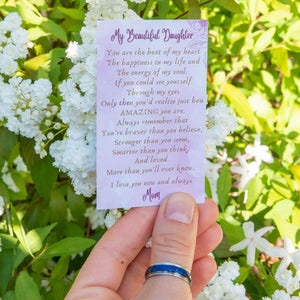 My Beautiful Daughter
You are the beat of my heart
The happiness in my life and
The energy of my soul.
If you could see yourself
Through my eyes
Only then you'd realise just how
AMAZING you are.
Always remember that
You're braver than you believe,
Stronger than you seem,
Smarter than you think,
And loved
More than you'll ever know.
I love you now and always
Mum